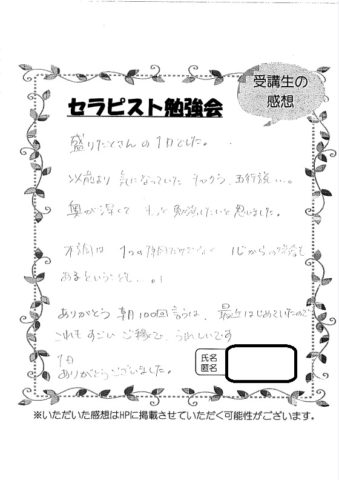 受講生の
感想
セラピスト勉強会
盛りたくさんの1日でした。
以前より 気になっていた チャクラ、五行強...。
奥が深くて もっと 勉強したいと思いました。
不調は 1つの だけでなく 心からの も
あるということも...。!
ありがとう 朝100回言うは、最近はじめていたので
これも すごい ご縁で、うれしいです
1日
ありがとうございました。
氏名
匿名
※いただいた感想はHPに掲載させていただく可能性がございます。